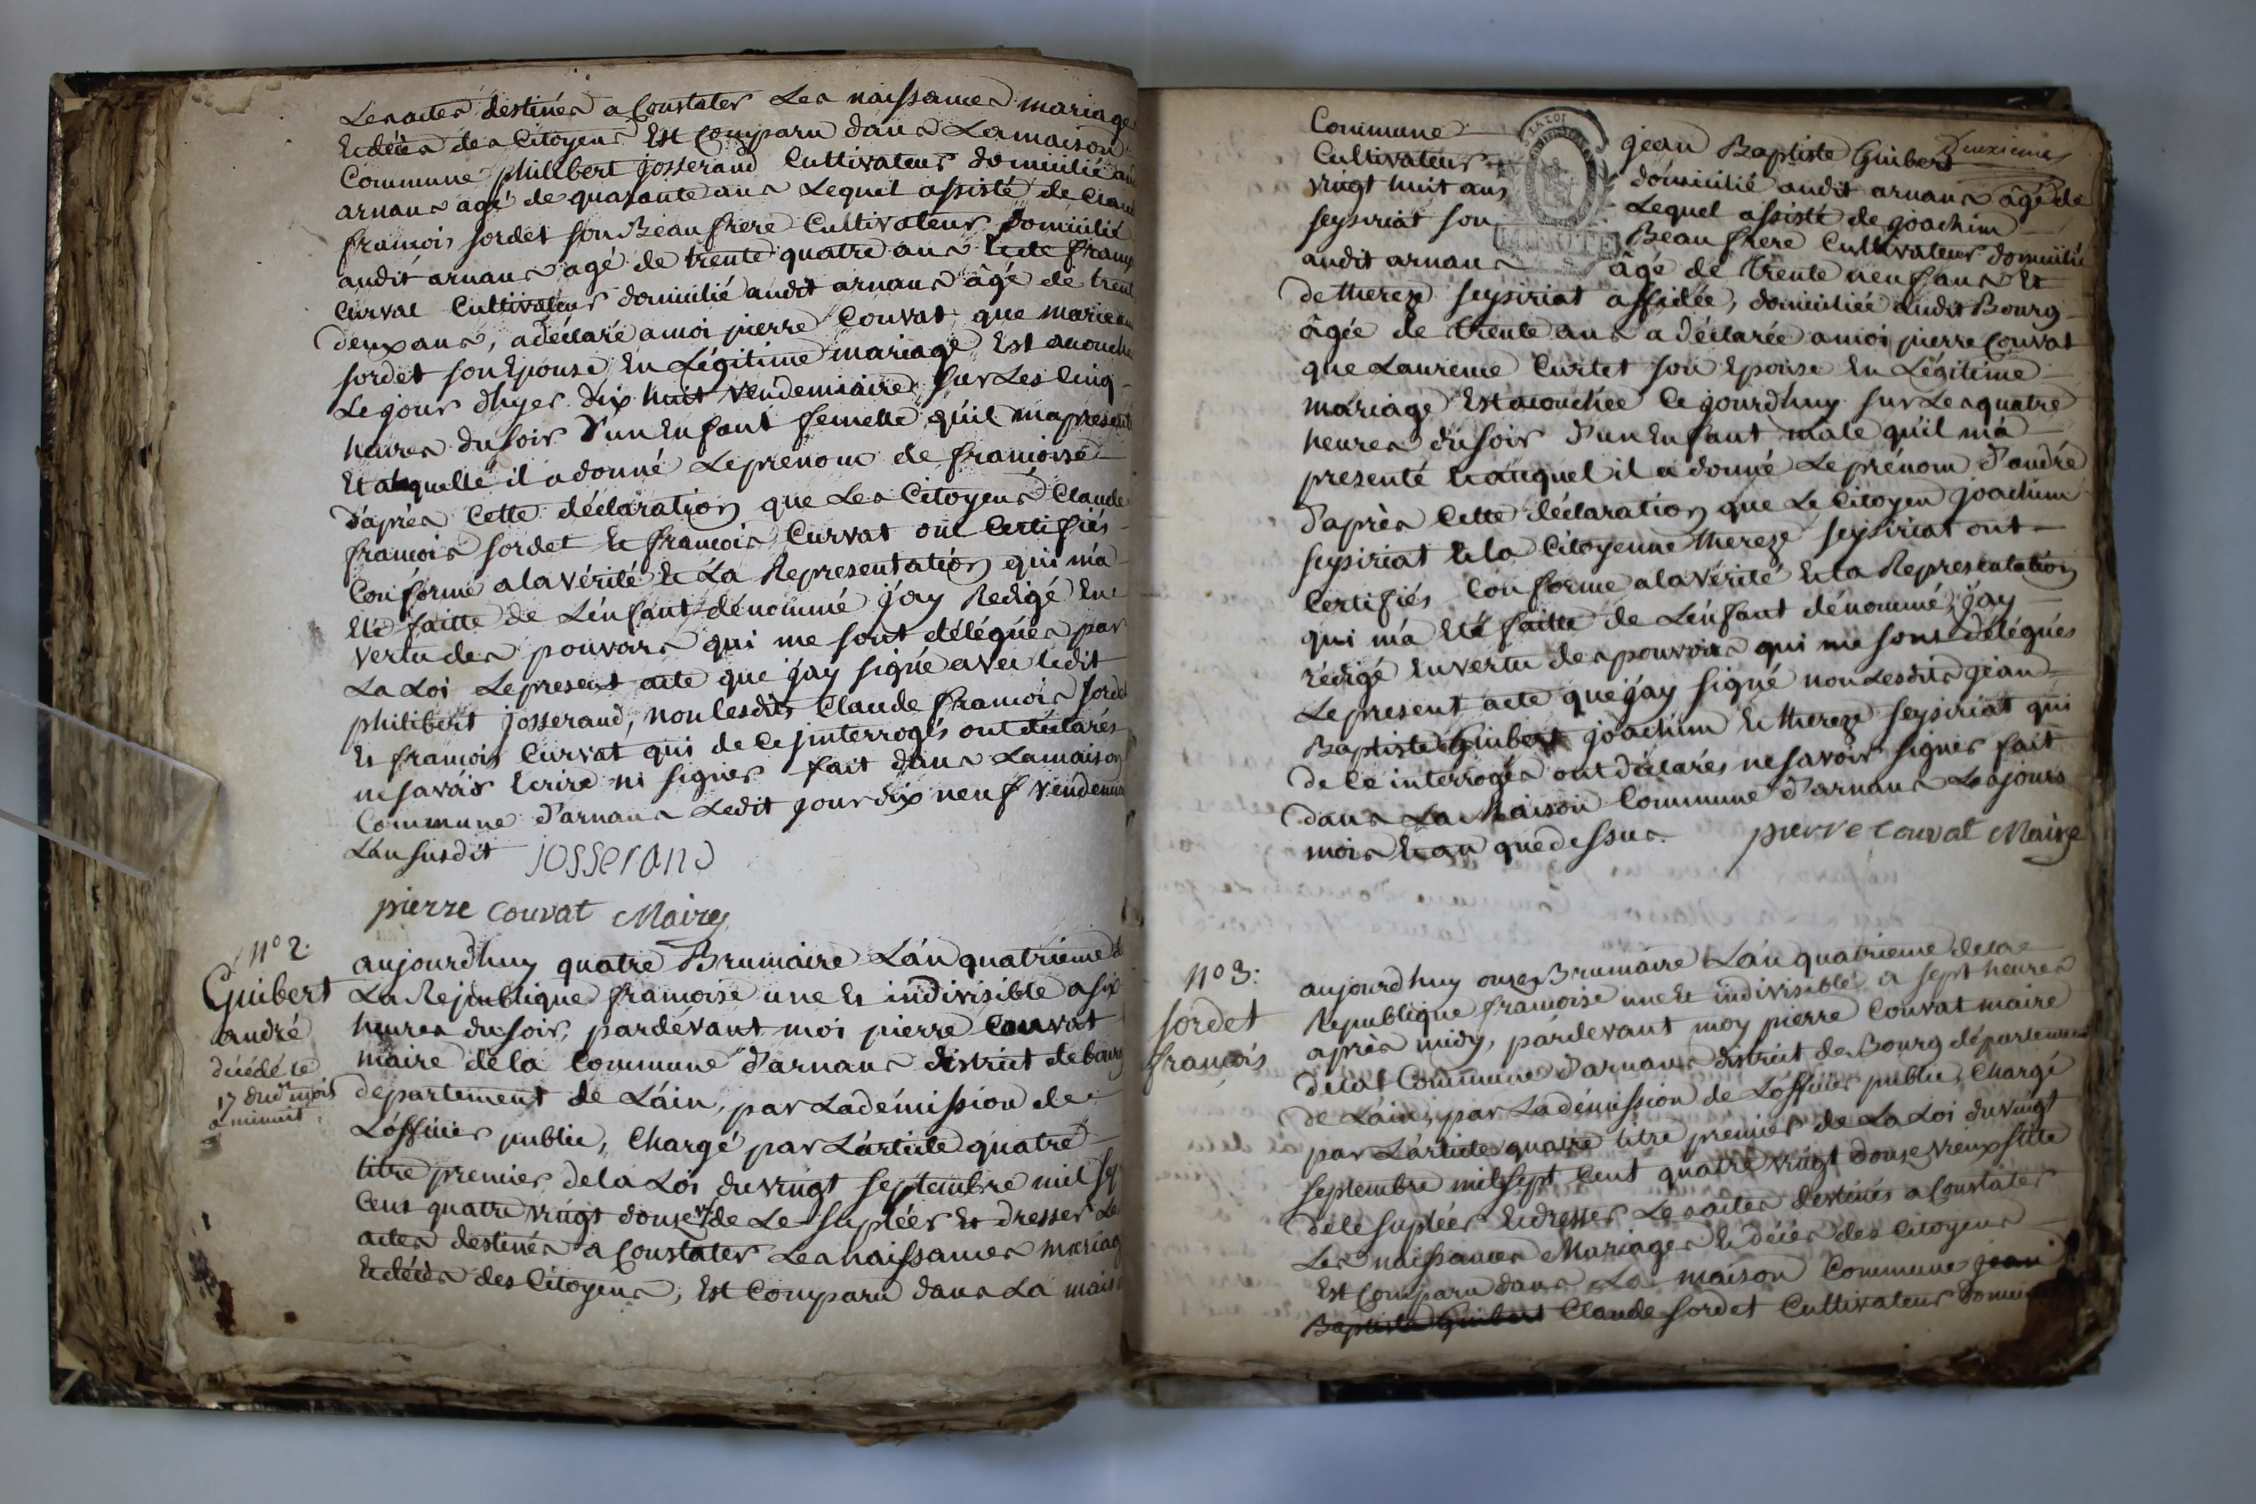 Les actes destinés a Constater Les naissances mariage
Et décès des Citoyens Est Comparu dans La maison
Commune philibert josserand Cultivateur domicilié au
arnans agé de quarante ans Lequel assisté de Clau
francois sordet son Beau frere Cultivateur domicilié
audit arnans agé de trente quatre ans Et de franc
Curvat Cultivateur domicilié audit arnans âgé de trent
deux ans, a déclaré a moi pierre Couvat, que marie
sordet son Epouse En Légitime mariage Est accouché
Le jour d'hyer dix huit Vendemiaire sur Les Cinq
heures du soir d'un Enfant femelle qu'il m'a presenté
Et alaquelle il a donné Le prénom de francoise
d'après Cette déclaration que Les Citoyens Claude
francois sordet Et francois Curvat ont Certifiés
Conforme a la Vérité Et La Representation qui m'a
Eté faitte de L'enfant dénommé j'ay Redigé En
vertu des pouvoirs qui me sont délégués par
La Loi Le present acte que j'ay signé avec ledit
philibert josserand, non lesdits Claude francois sordet
Et francois Curvat qui de Ce interrogés ont déclarés
ne savoir Ecrire ni signer fait dans La maison
Commune d'arnans Ledit jour dix neuf Vendemia
L'an susdit josserand
pierre couvat Maire
N° 2.
Guibert
andré
décédé le
17 dud. mois
a minuit.
aujourd'huy quatre Brumaire L'an quatrieme de
La Republique francoise une Et indivisible a six
heures du soir, pardevant moi pierre Couvat
maire de la Commune d'arnans district de bourg
departement de L'ain, par La démission de
L'officier public, Chargé par L'article quatre
titre premier de la Loi du vingt septembre mil sep
Cent quatre vingt douse de Le supléer Et dresser Le
actes destinés a Constater Les naissances mariag
Et décès des Citoyens, Est Comparu dans La mais
Deuxieme
LA LOI
MINUTE
Commune jean Baptiste Guibert
Cultivateur domicilié audit arnans âgé de
vingt huit ans Lequel assisté de joachim
seysiriat son Beau frere Cultivateur domicilié
audit arnans âgé de trente neuf ans Et
de thereze seysiriat affidée, domiciliée audit Bourg
âgée de trente ans a déclarée a moi pierre Couvat
que Laurence Curtet son Epouse En Légitime
mariage Est acouchée Ce jourd'huy sur Les quatre
heures du soir d'un Enfant male qu'il m'a
presenté Et auquel il a donné Le prénom d'andré
d'après Cette déclaration que Le Citoyen joachim
seysiriat Et la Citoyenne thereze seysiriat ont
Certifiés Conforme a la Vérité Et la Representation
qui m'a Eté faitte de L'enfant dénommé, j'ay
rédigé En vertu des pouvoirs qui me sont délégués
Le present acte que j'ay signé non Lesdits jean
Baptiste Guibert joachim Et thereze seysiriat qui
de Ce interrogés ont déclarés ne savoir signer fait
dans La Maison Commune d'arnans Les jours
mois Et an que dessus. pierre couvat Maire
N° 3:
sordet
francois
aujourd'huy onze Brumaire L'an quatrieme de la
Republique francoise une Et indivisible a sept heures
après midy, pardevant moy pierre Couvat maire
de la Commune d'arnans district de Bourg département
de L'ain, par La démission de L'officier public, Chargé
par L'article quatre titre premier de La Loi du vingt
septembre mil sept Cent quatre vingt douse vieux stile
de le supléer Et dresser Les actes destinés a Constater
Les naissances Mariages Et décès des Citoyens
Est Comparu dans La maison Commune jean
Baptiste Guibert Claude sordet Cultivateur domici